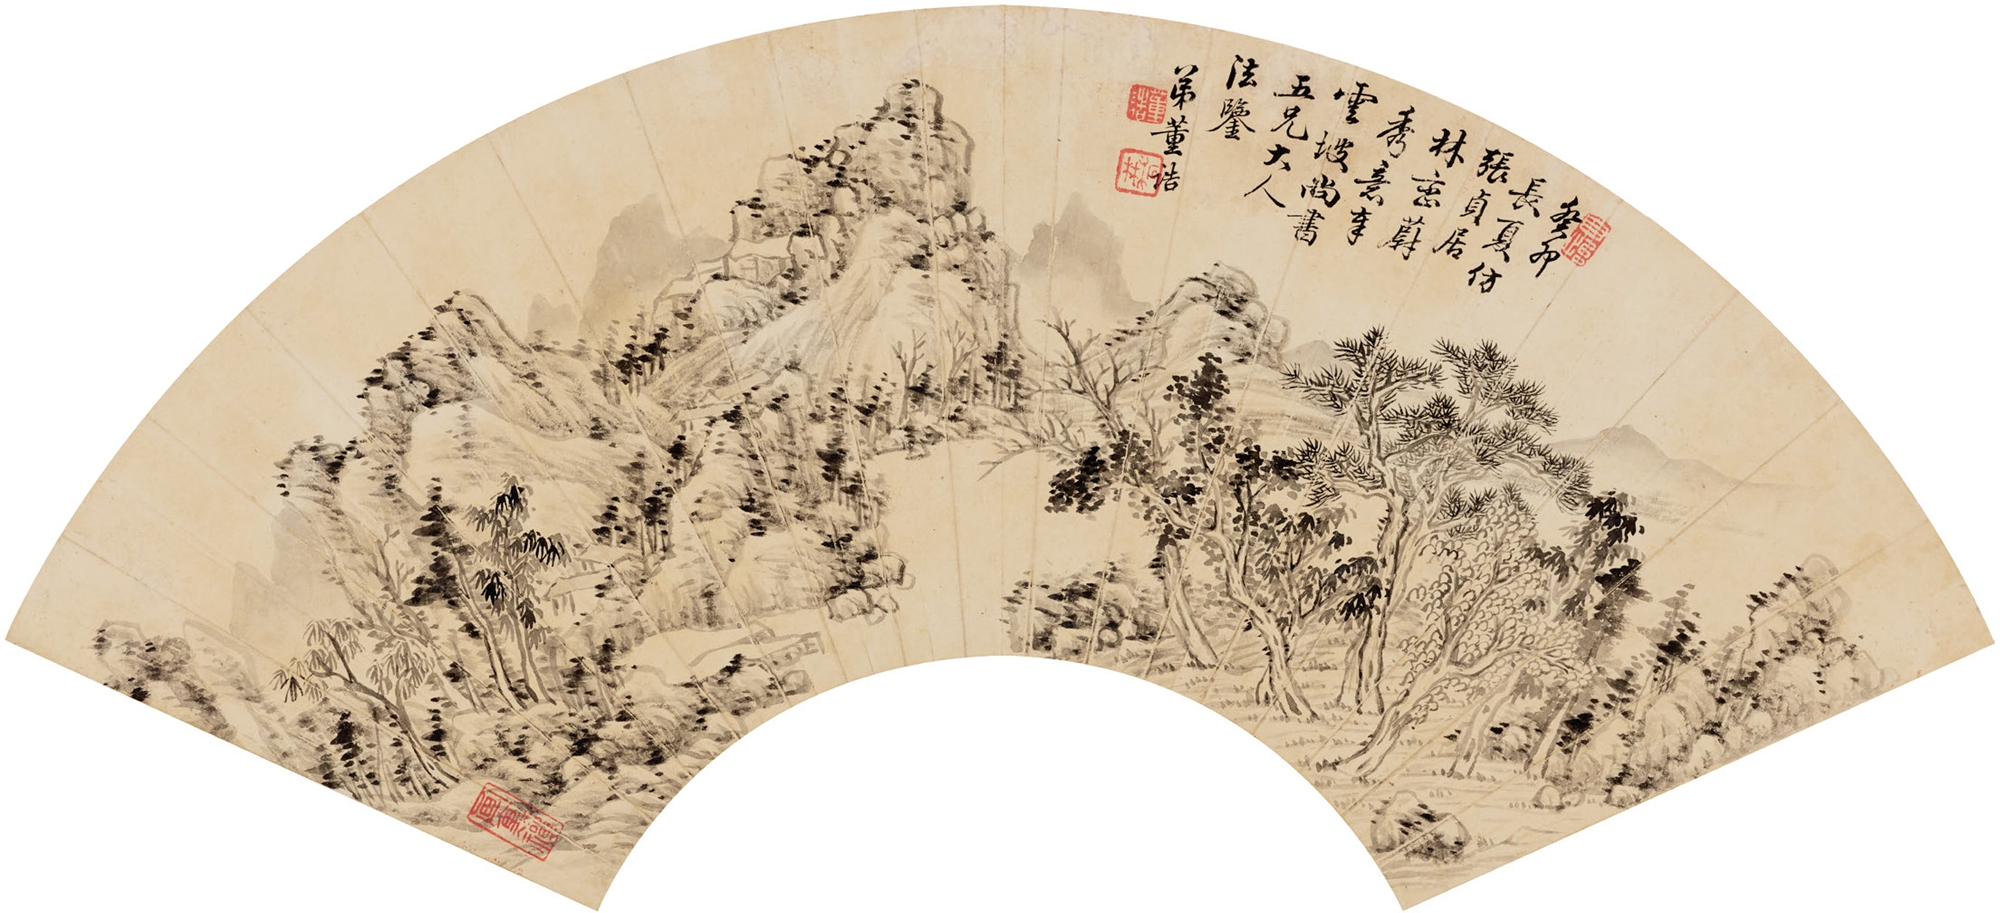 癸卯
長夏仿
張貞居
林巒蔚
秀意奉
雲坡尚書
五兄大人
法鑒
弟董誥
董誥
柘林